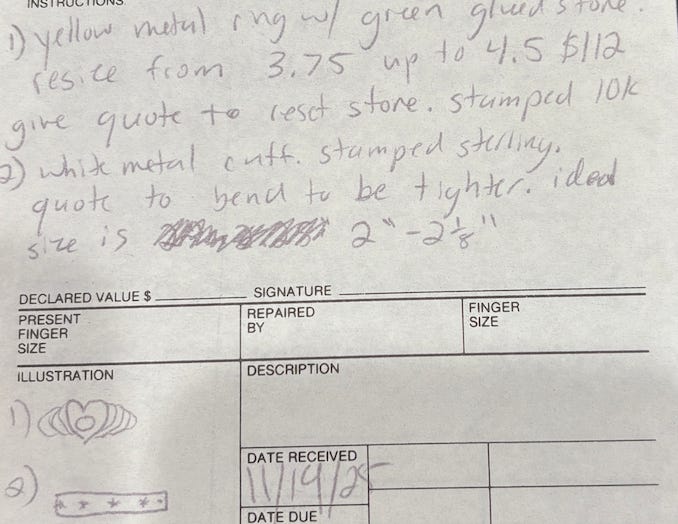 INSTRUCTIONS
1) yellow metal ring w/ green glued stone.
resize from 3.75 up to 4.5 $112
give quote to reset stone. stamped 10k
2) white metal cuff. stamped sterling.
quote to bend to be tighter. ideal
size is 2" - 2 1/8"
DECLARED VALUE $ SIGNATURE
PRESENT FINGER SIZE
REPAIRED BY
FINGER SIZE
ILLUSTRATION
DESCRIPTION
1)
2)
DATE RECEIVED
11/19/25
DATE DUE